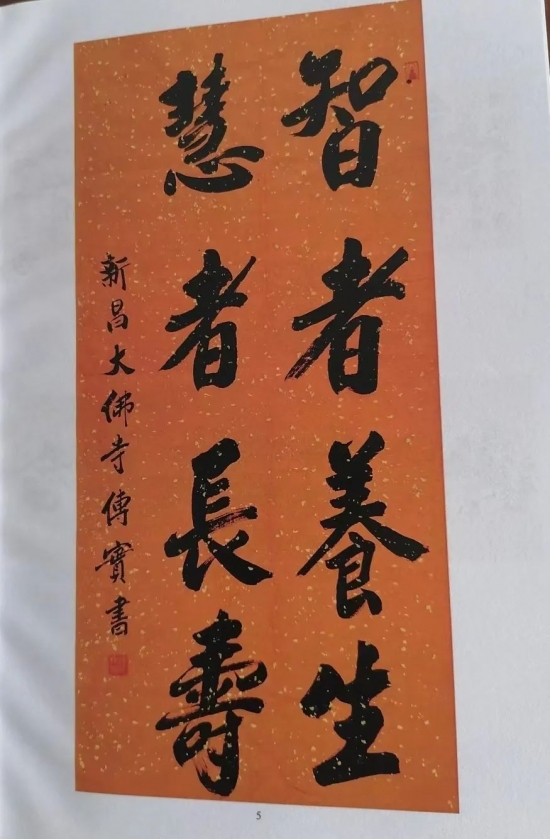 智者養生
慧者長壽
新昌大佛寺傳實書
5